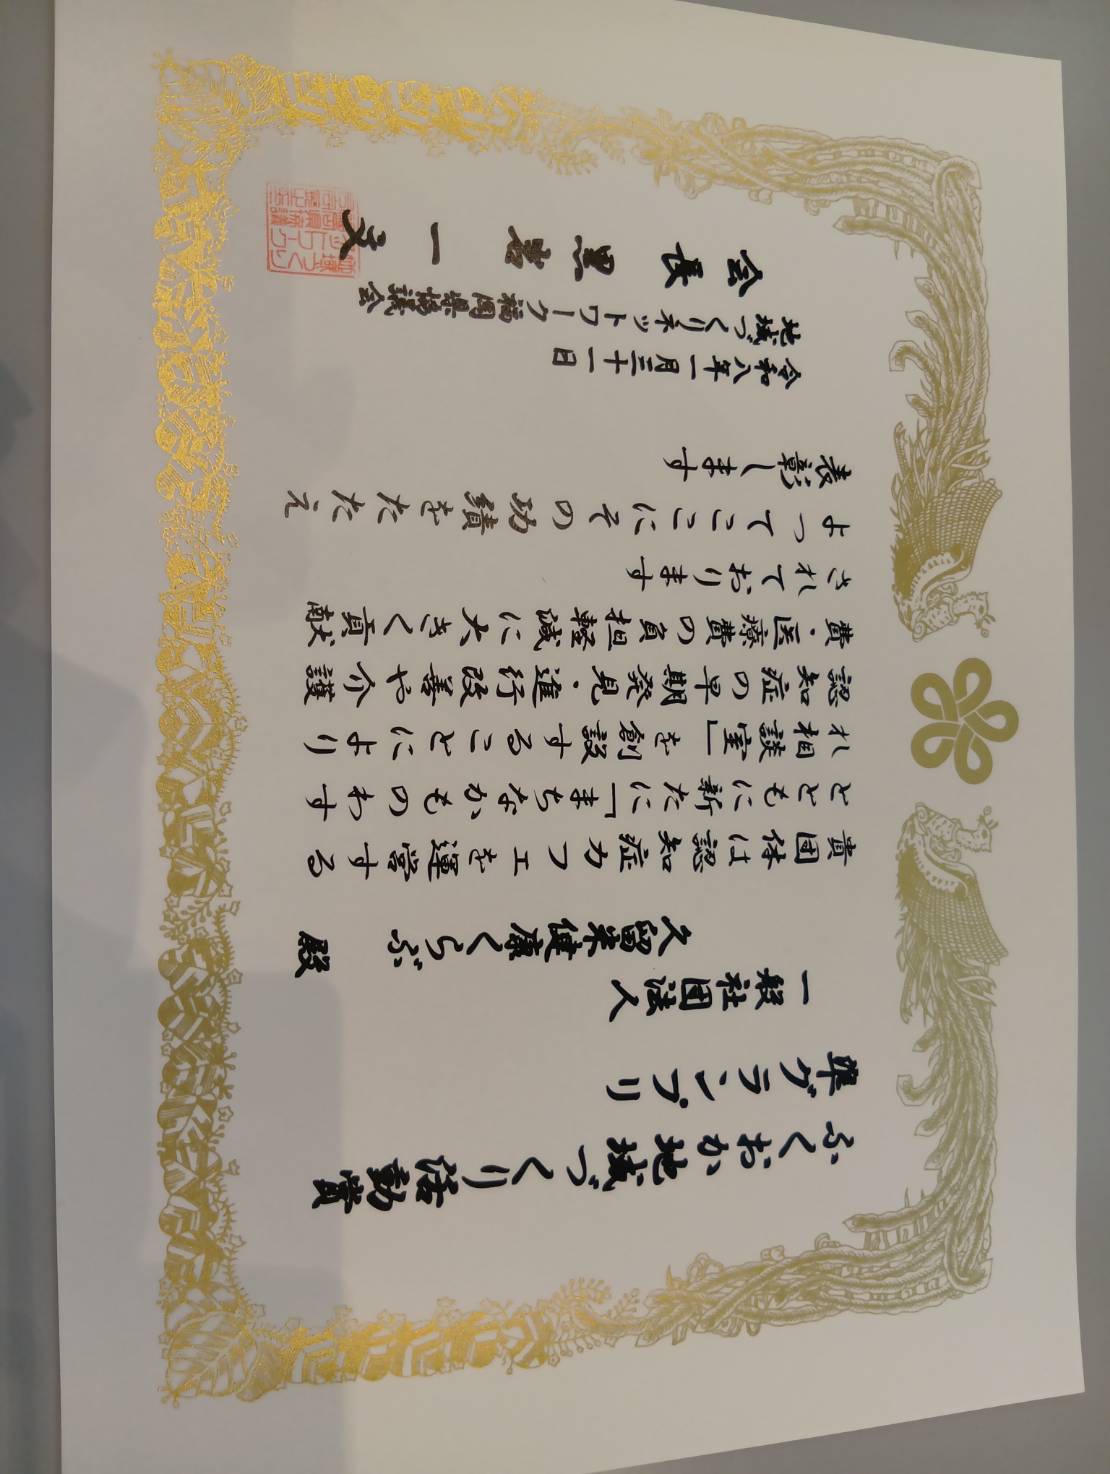 ふくおか地域づくり活動賞
準グランプリ
一般社団法人
久留米健康くらぶ 殿
貴団体は認知症カフェを運営する
とともに新たに「まちなかものわす
れ相談室」を創設することにより
認知症の早期発見・進行改善や介護
費・医療費の負担軽減に大きく貢献
されております
よってここにその功績をたたえ
表彰します
令和八年一月三十一日
地域づくりネットワーク福岡県協議会
会長 黒岩 一文